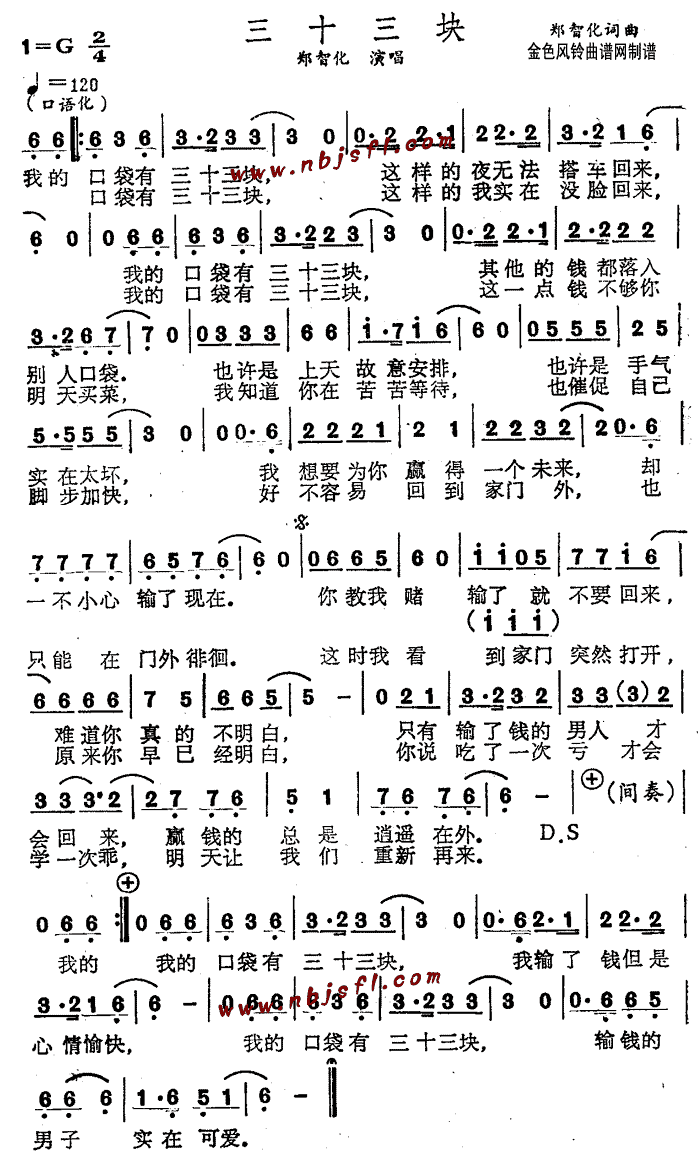 三十三块
郑智化词曲
1=G 2/4
郑智化 演唱
金色风铃曲谱网制谱
♩=120
(口语化)
6 6 ‖: 6 3 6 | 3·2 3 3 | 3 0 | 0·2 2·1 | 2 2·2 | 3·2 1 6 |
www.nbjsfl.com
我的 口袋有 三十三块, 这样的夜无法 搭车回来,
口袋有 三十三块, 这样的我实在 没脸回来,
6 0 | 0 6 6 | 6 3 6 | 3·2 3 3 | 3 0 | 0·2 2·1 | 2·2 2 2 |
我的 口袋有 三十三块, 其他的钱都落入
我的 口袋有 三十三块, 这一点钱不够你
3·2 6 7 | 7 0 | 0 3 3 3 | 6 6 | i·7 i 6 | 6 0 | 0 5 5 5 | 2 5 |
别人口袋. 也许是 上天 故意安排, 也许是 手气
明天买菜, 我知道 你在 苦苦等待, 也催促 自己
5·5 5 5 | 3 0 | 0 0·6 | 2 2 2 1 | 2 1 | 2 2 3 2 | 2 0·6 |
实在太坏, 我 想要为你 赢得 一个未来, 却
脚步加快, 好 不容易 回到 家门外, 也
7 7 7 7 | 6 5 7 6 | 6 0 | 0 6 6 5 | 6 0 | i i 0 5 | 7 7 i 6 |
一不小心 输了现在. 你教我 赌 输了就 不要回来,
(i i i)
只能在 门外徘徊. 这时我 看 到家门 突然打开,
6 6 6 6 | 7 5 | 6 6 5 | 5 - | 0 2 1 | 3·2 3 2 | 3 3 (3) 2 |
难道你 真的 不明白, 只有 输了钱的 男人 才
原来你 早已 经明白, 你说 吃了一次 亏 才会
3 3 3·2 | 2 7 7 6 | 5 1 | 7 6 7 6 | 6 - | (间奏)
会回来, 赢钱的 总是 逍遥在外. D.S
学一次乖, 明天让 我们 重新再来.
0 6 6 :‖ 0 6 6 | 6 3 6 | 3·2 3 3 | 3 0 | 0·6 2·1 | 2 2·2 |
我的 我的 口袋有 三十三块, 我输了 钱但是
3·2 1 6 | 6 - | 0 6 6 | 6 3 6 | 3·2 3 3 | 3 0 | 0 6 6 5 |
www.nbjsfl.com
心情愉快, 我的 口袋有 三十三块, 输钱的
6 6 6 | 1·6 5 1 | 6 - ‖
男子 实在可爱.